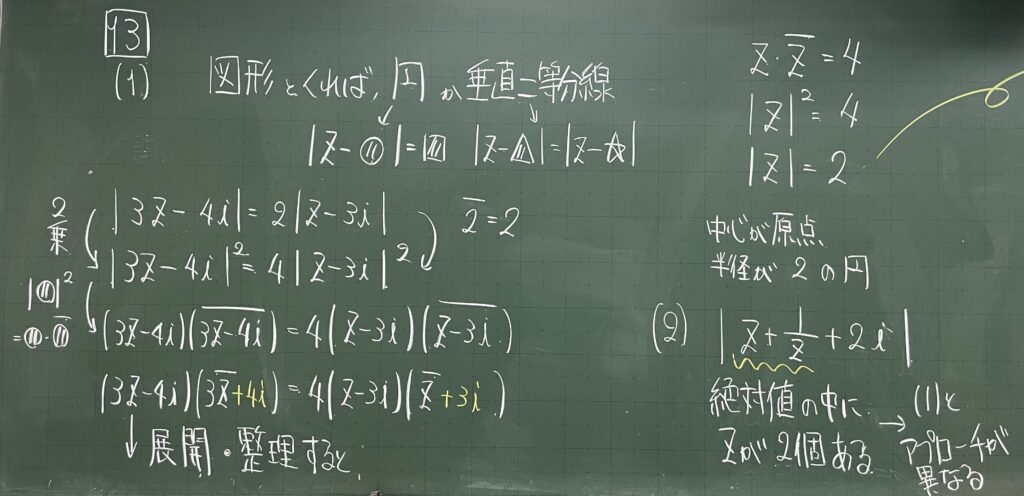 13
(1) 図形とくれば,円か垂直二等分線
|z-〇|=□ |z-△|=|z-☆|
2乗
|3z-4i|=2|z-3i|
2̅=2
|3z-4i|²=4|z-3i|²
|〇|²
=〇・〇̅
(3z-4i)(\overline{3z-4i})=4(z-3i)(\overline{z-3i})
(3z-4i)(3z̅+4i)=4(z-3i)(z̅+3i)
↓展開・整理すると,
z・z̅=4
|z|²=4
|z|=2
中心が原点
半径が2の円
(2) |z+\frac{1}{z}+2i|
絶対値の中に
zが2個ある
→(1)と
アプローチが
異なる